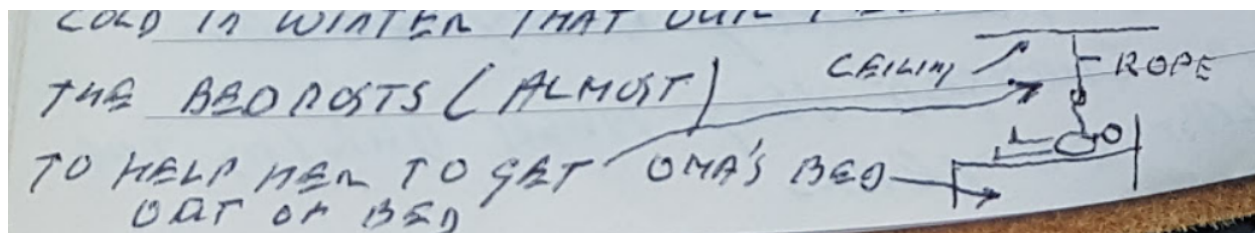 COLD IN WINTER THAT OUR
THE BEDPOSTS (ALMOST)
CEILING
ROPE
TO HELP HER TO GET
OUT OF BED
OMA'S BED